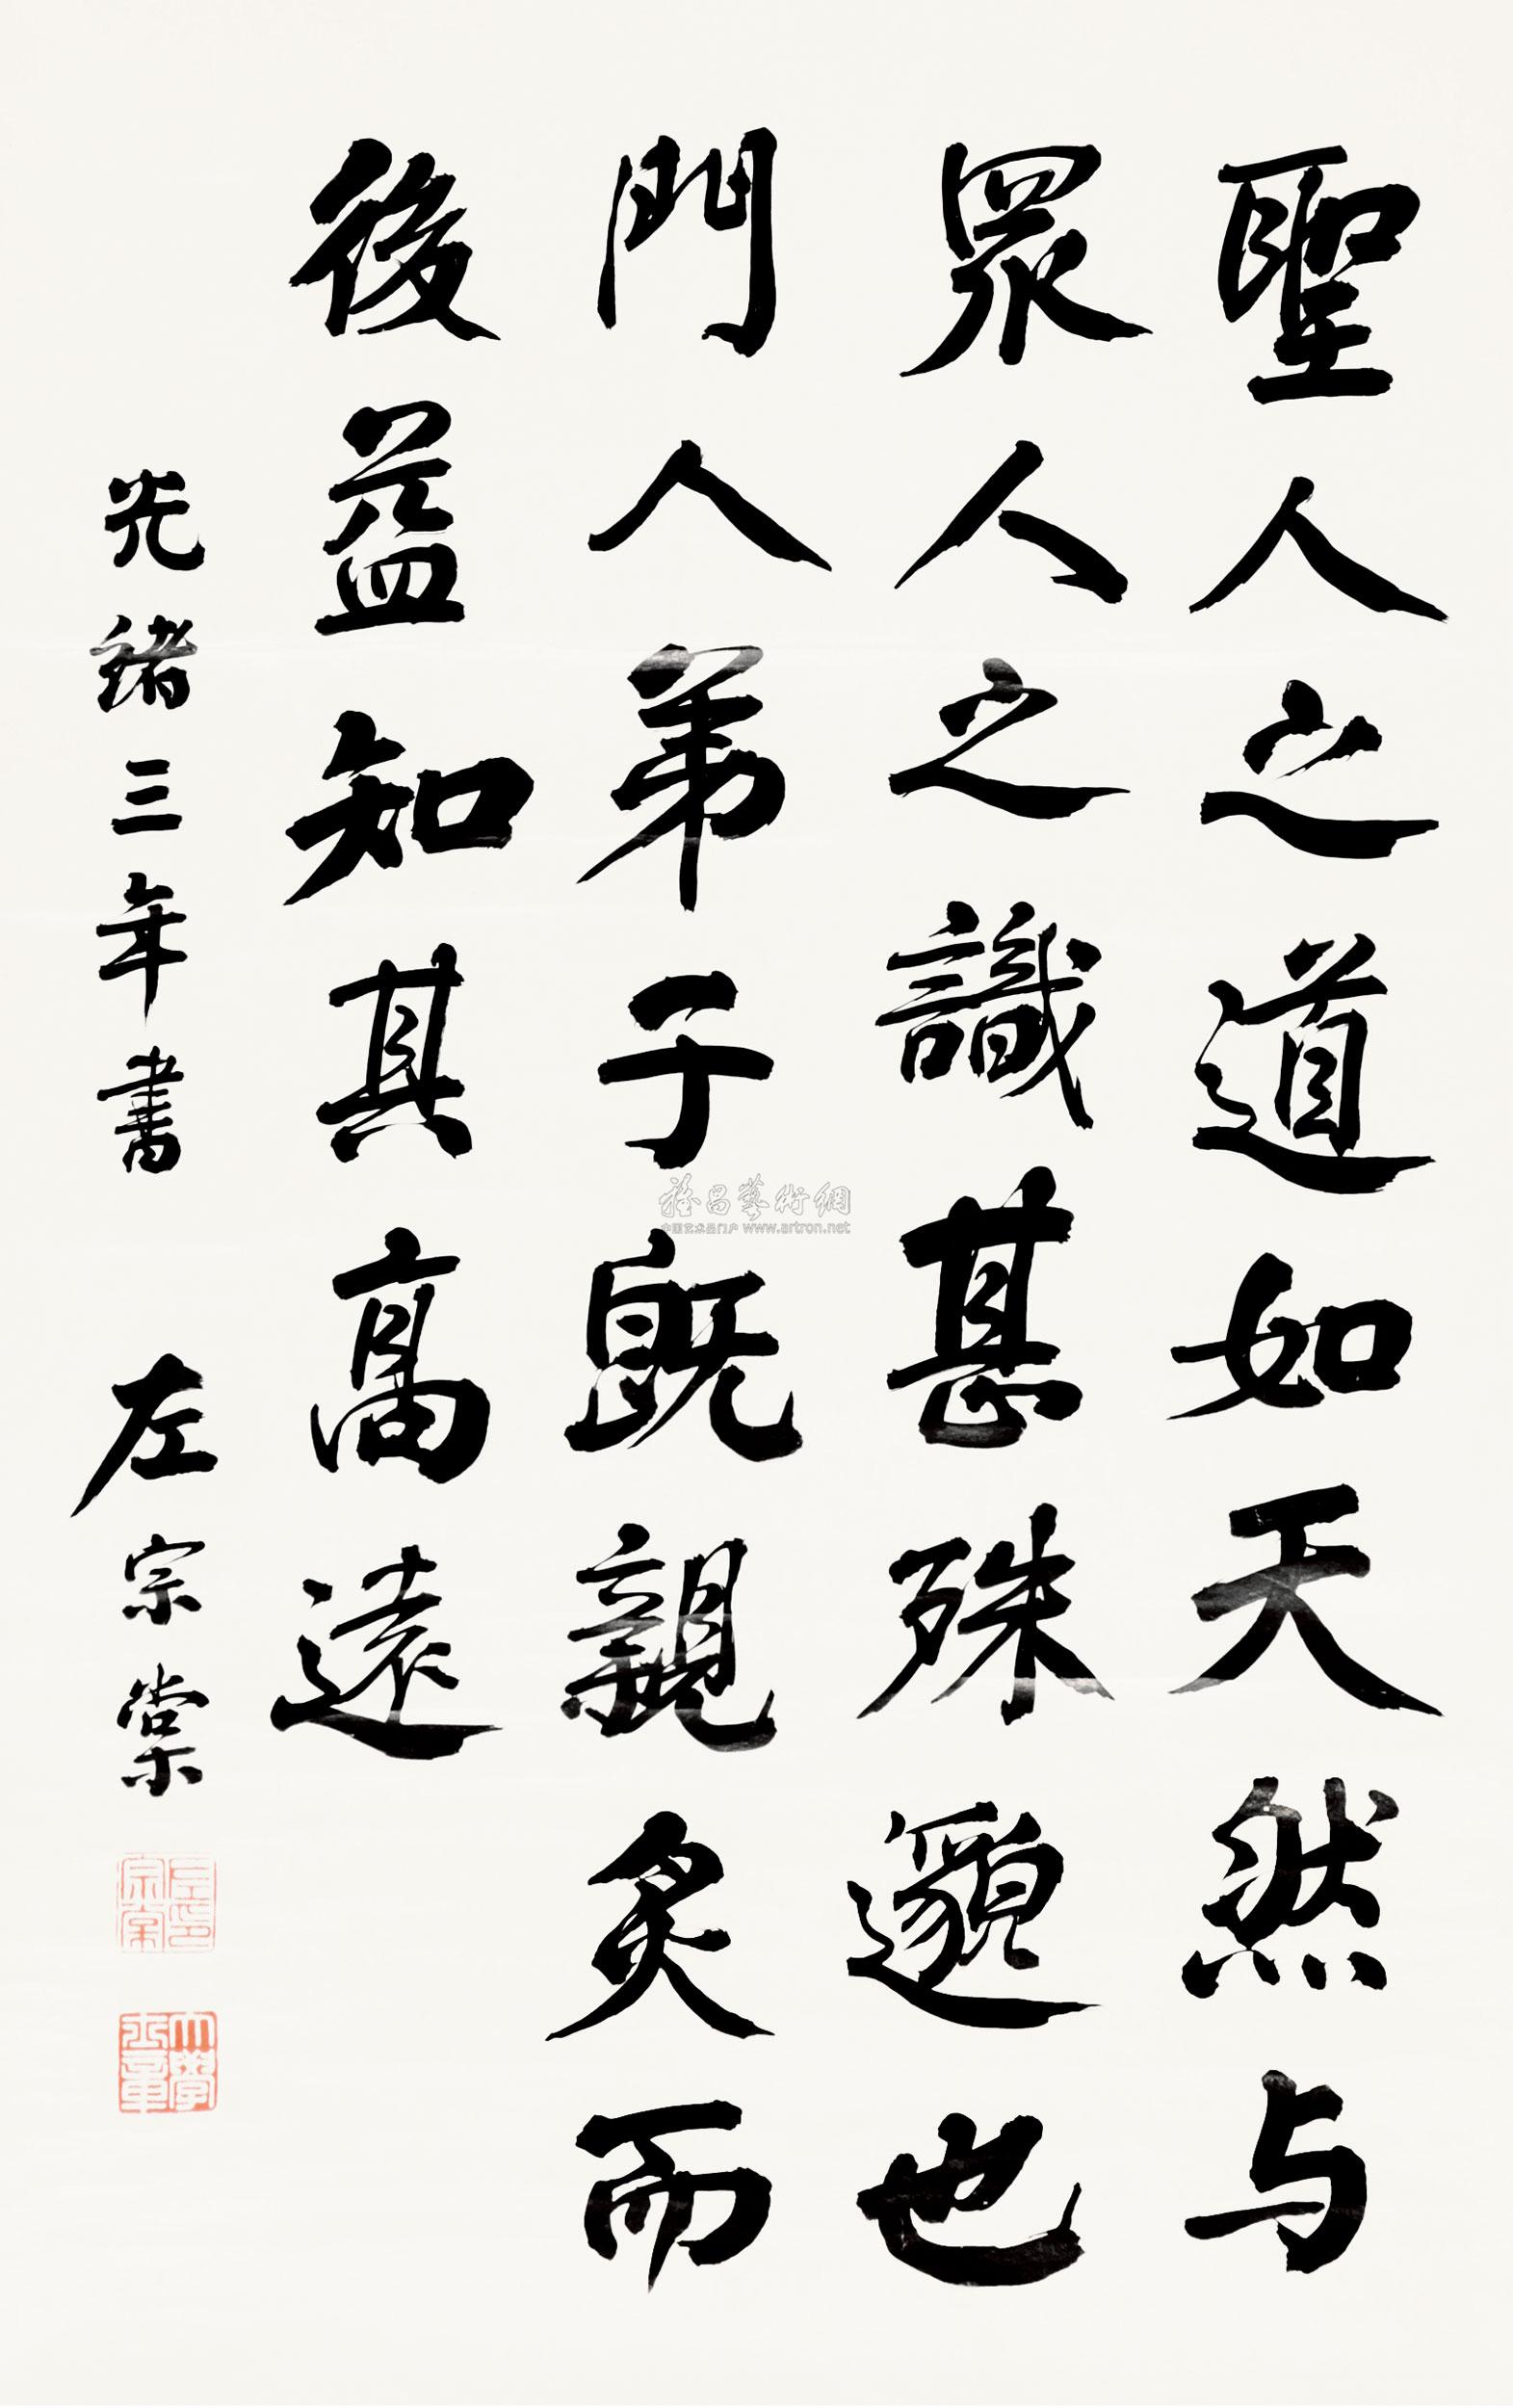 聖人之道如天然与
眾人之識甚殊邈也
門人弟子既親炙而
後益知其高遠
光緒三年書 左宗棠
雅昌藝術網
中国艺术品门户 www.artron.net